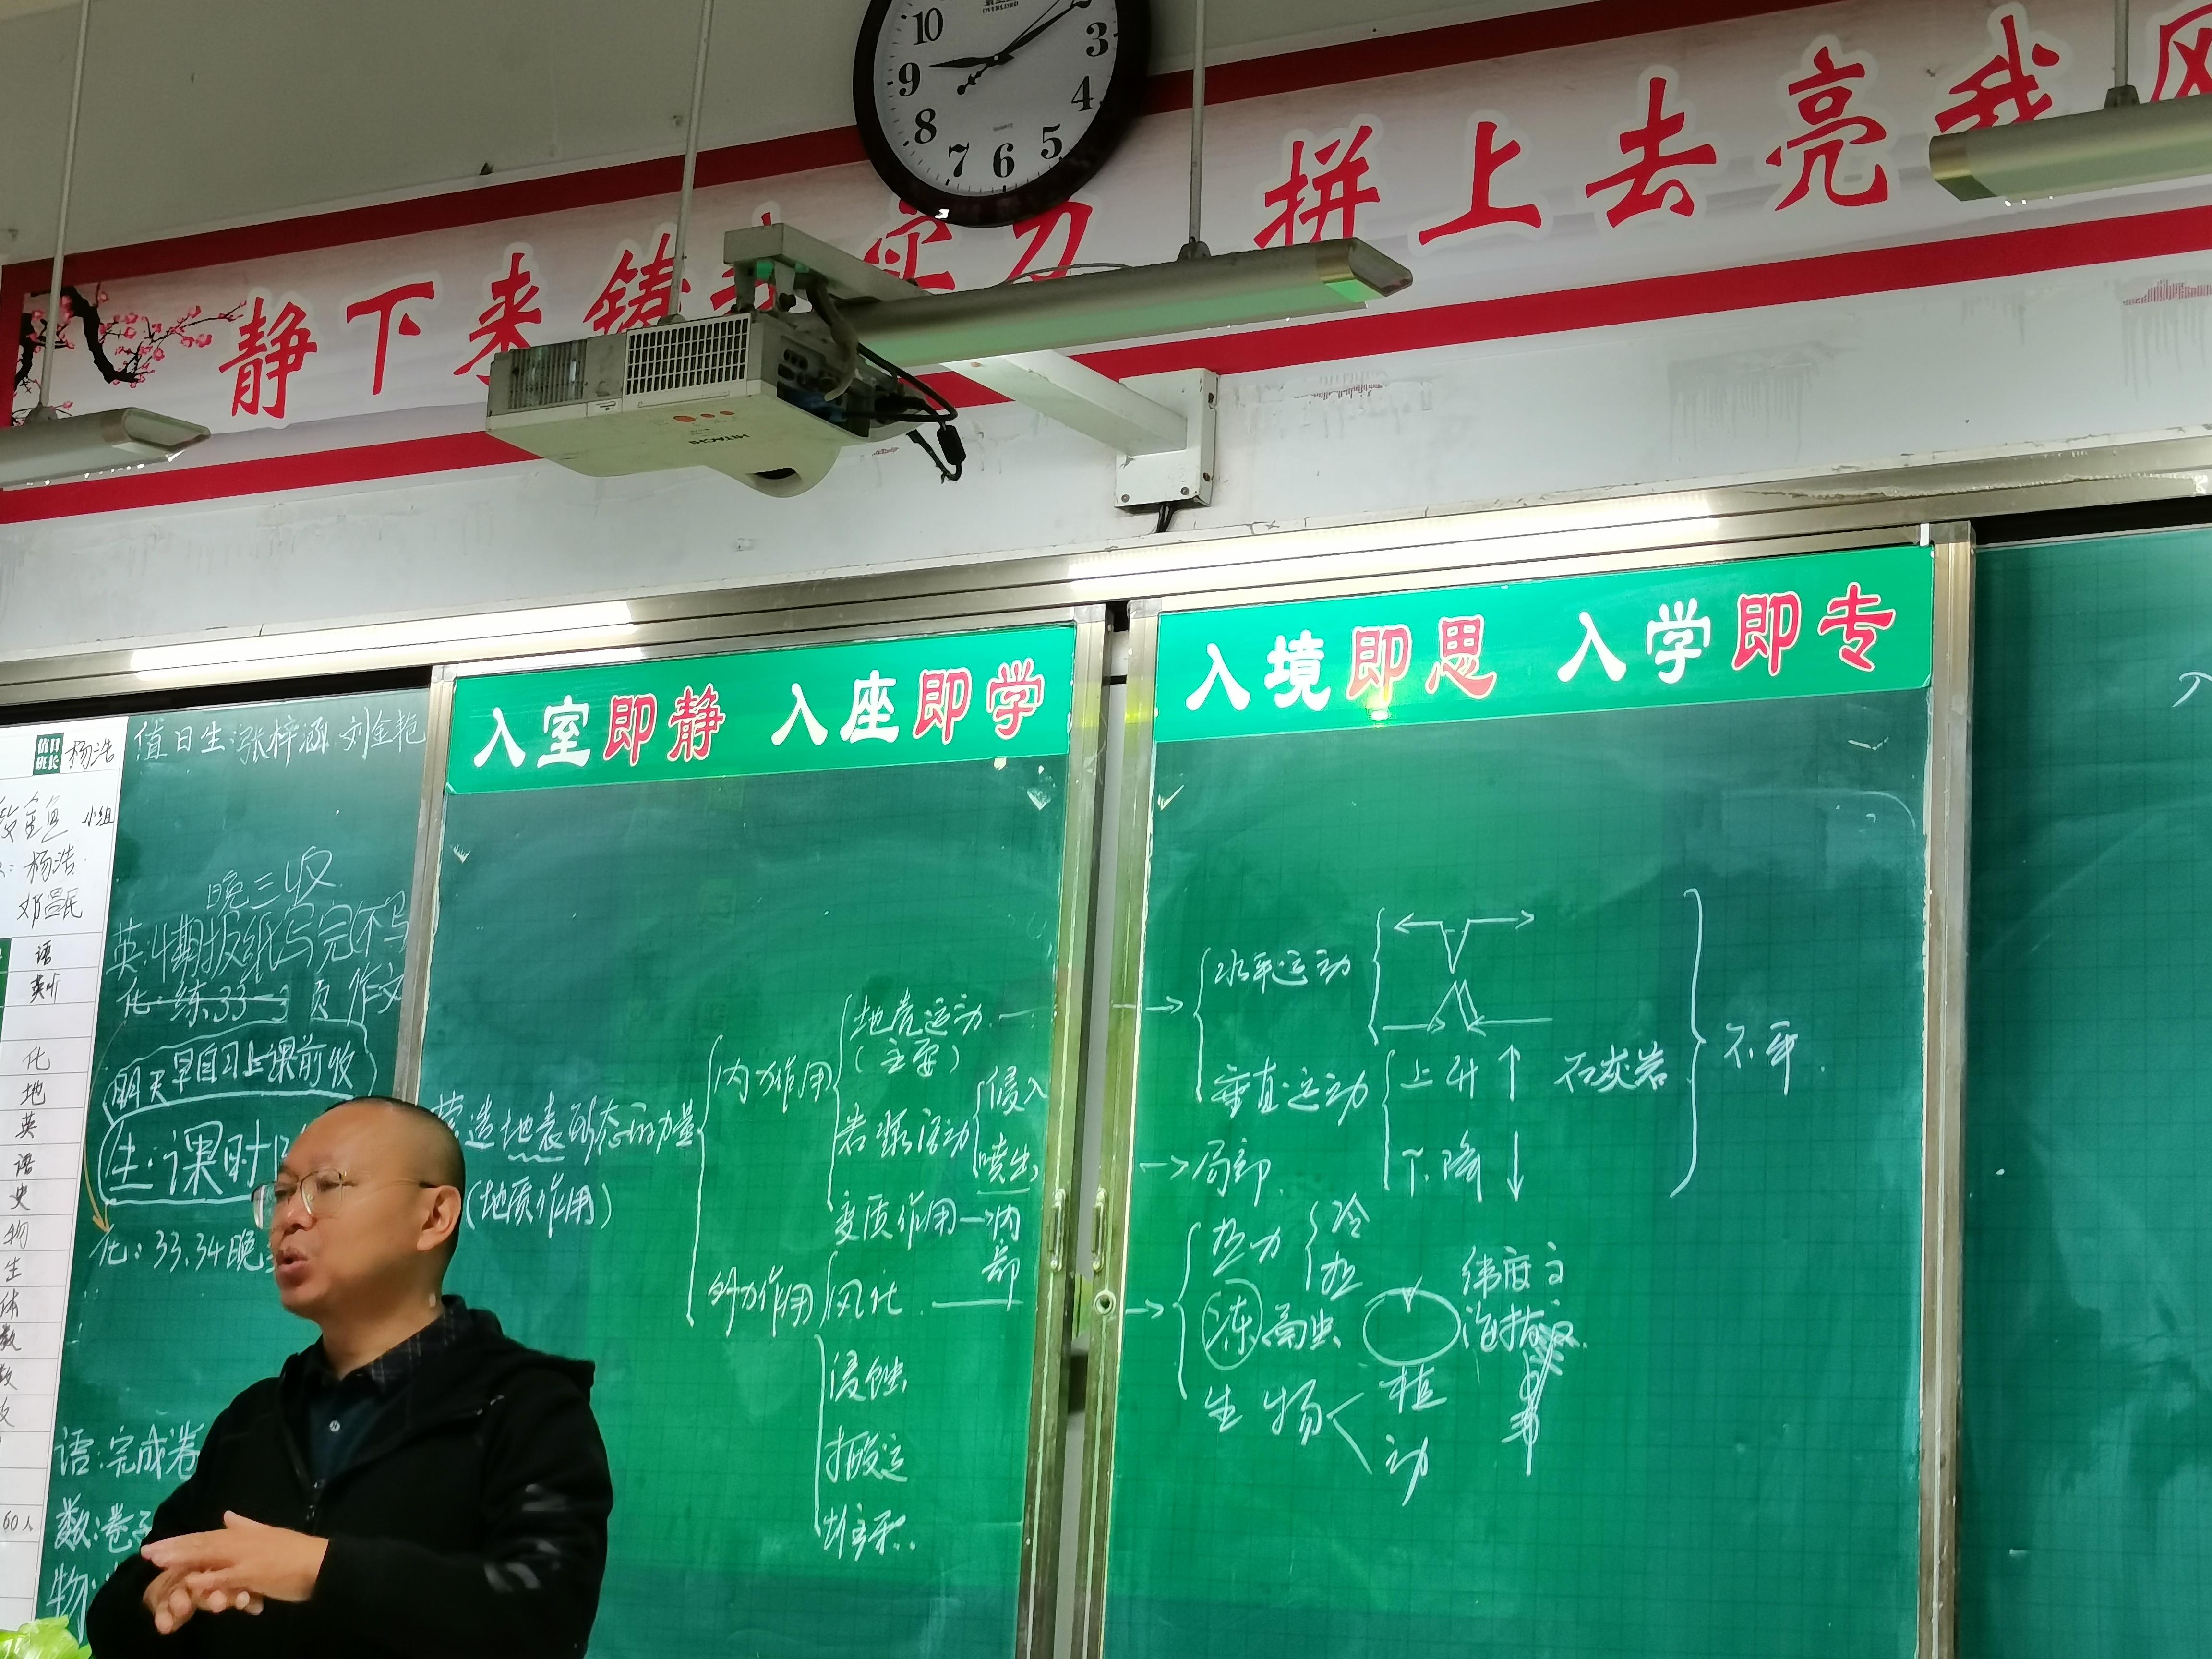 10
9
8
7
6
5
4
3
2
静下来铸 实力 拼上去亮我风
HITACHI
入室即静 入座即学
入境即思 入学即专
值日班长 杨浩
小组
杨浩
语
英听
化
地
英
语
史
物
生
体
数
60人
值日生:张梓涵 刘金艳
晚三收
英:1期报纸写完不写
化:练33-3页 作文
明天早自习上课前收
生:课时
化:33.34晚
语:完成卷
数:卷
物:
营造地表形态的力量
(地质作用)
内力作用
地壳运动
(主要)
岩浆活动
侵入
喷出
变质作用→内部
外力作用
风化
侵蚀
搬运
堆积
水平运动
垂直运动
上升
下降
石灰岩
不平.
局部
热力
冷
热
冻
生物
植
动
纬度
入